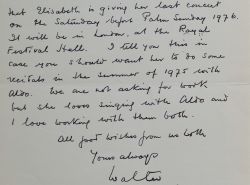 that Elisabeth is giving her last concert
on the Saturday before Palm Sunday 1976.
It will be in London, at the Royal
Festival Hall. I tell you this in
case you should want her to do some
recitals in the summer of 1975 with
Aldo. We are not asking for work
but she loves singing with Aldo and
I love working with them both.
All good wishes from us both
Yours always
Walter